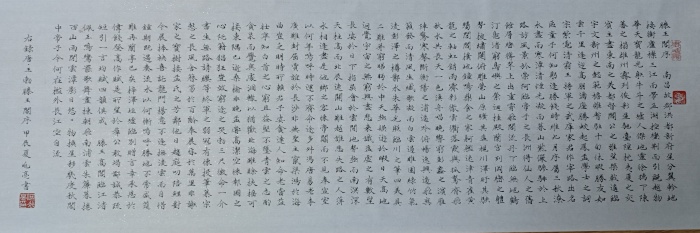 滕王閣序 南昌故郡洪都新府星分翼軫地
接衡廬襟三江而帶五湖控蠻荊而引甌越物
華天寶龍光射牛斗之墟人傑地靈徐孺下陳
蕃之榻雄州霧列俊彩星馳臺隍枕夷夏之交
賓主盡東南之美都督閻公之雅望棨戟遙臨
宇文新州之懿範襜帷暫駐十旬休暇勝友如
雲千里逢迎高朋滿座騰蛟起鳳孟學士之詞
宗紫電清霜王將軍之武庫家君作宰路出名
區童子何知躬逢勝餞時維九月序屬三秋潦
水盡而寒潭清煙光凝而暮山紫儼驂騑於上
路訪風景於崇阿臨帝子之長洲得仙人之舊
館層巒聳翠上出重霄飛閣流丹下臨無地鶴
汀鳧渚窮島嶼之縈迴桂殿蘭宮列岡巒之體
勢披繡闥俯雕甍山原曠其盈視川澤紆其駭
矚閭閻撲地鐘鳴鼎食之家舸艦迷津青雀黃
龍之軸虹銷雨霽彩徹區明落霞與孤鶩齊飛
秋水共長天一色漁舟唱晚響窮彭蠡之濱雁
陣驚寒聲斷衡陽之浦遙襟俯暢逸興遄飛爽
籟發而清風生纖歌凝而白雲遏睢園綠竹氣
凌彭澤之樽鄴水朱華光照臨川之筆四美具
二難并窮睇眄於中天極娛遊於暇日天高地
迥覺宇宙之無窮興盡悲來識盈虛之有數望
長安於日下指吳會於雲間地勢極而南溟深
天柱高而北辰遠關山難越誰悲失路之人萍
水相逢盡是他鄉之客懷帝閽而不見奉宣室
以何年嗚呼時運不齊命途多舛馮唐易老李
廣難封屈賈誼於長沙非無聖主竄梁鴻於海
曲豈乏明時所賴君子安貧達人知命老當益
壯寧知白首之心窮且益堅不墜青雲之志酌
貪泉而覺爽處涸轍以猶歡北海雖賒扶搖可
接東隅已逝桑榆非晚孟嘗高潔空懷報國之
心阮籍猖狂豈效窮途之哭勃三尺微命一介
書生無路請纓等終軍之弱冠有懷投筆慕宗
愨之長風舍簪笏於百齡奉晨昏於萬里非謝
家之寶樹接孟氏之芳鄰他日趨庭叨陪鯉對
今晨捧袂喜托龍門楊意不逢撫凌雲而自惜
鍾期既遇奏流水以何慚嗚呼勝地不常盛筵
難再蘭亭已矣梓澤丘墟臨別贈言幸承恩於
偉餞登高作賦是所望於群公敢竭鄙誠恭疏
短引一言均賦四韻俱成 滕王高閣臨江渚
佩玉鳴鸞罷歌舞畫棟朝飛南浦雲朱簾暮捲
西山雨閒雲潭影日悠悠物換星移幾度秋閣
中帝子今何在檻外長江空自流
右錄唐王勃滕王閣序 甲辰夏 書